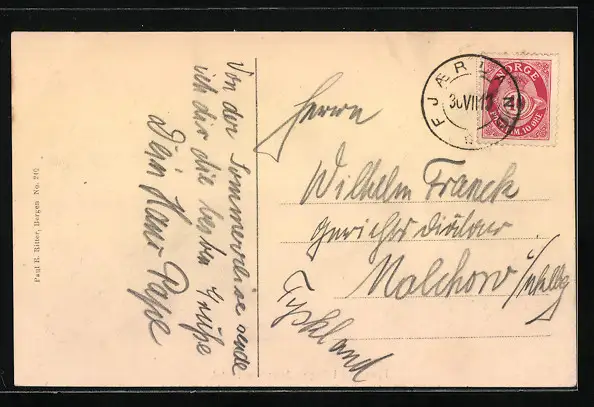 Von der Sommerreise sende
ich dir die besten Grüße
Dein Hans Pape
Paul E. Ritter, Bergen No. 240
Herrn
Wilhelm Franck
Gerichtsdiätar
Malchow i/Meklbg
Tyskland
NORGE
10
FRIM. 10 ØRE
FJÆRLAND
30 VII 12